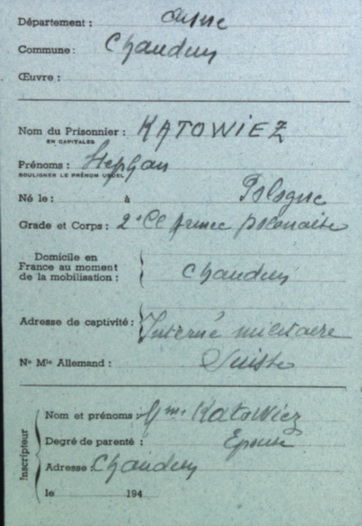 Département : Aisne
Commune : Chaudun
Œuvre :
Nom du Prisonnier : KATOWIEZ
EN CAPITALES
Prénoms : Stephan
SOULIGNER LE PRÉNOM USUEL
Né le : à Pologne
Grade et Corps : 2e Cl Armée polonaise
Domicile en
France au moment
de la mobilisation : Chaudun
Adresse de captivité : Interné militaire
Suisse
No Mle Allemand :
Inscripteur
Nom et prénoms : Mme Katowiez
Degré de parenté : Epouse
Adresse Chaudun
le 194